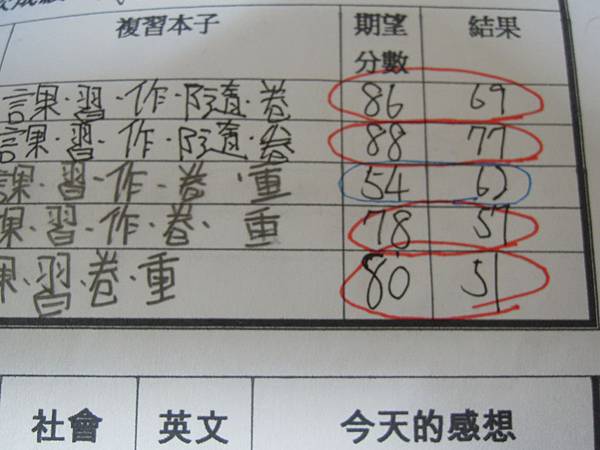 複習本子 期望分數 結果
課·習·作·隨·卷 86 69
課·習·作·隨·卷 88 77
課·習·作·卷·重 54
課·習·作·卷·重 78 57
課·習·卷·重 80 51
社會 英文 今天的感想